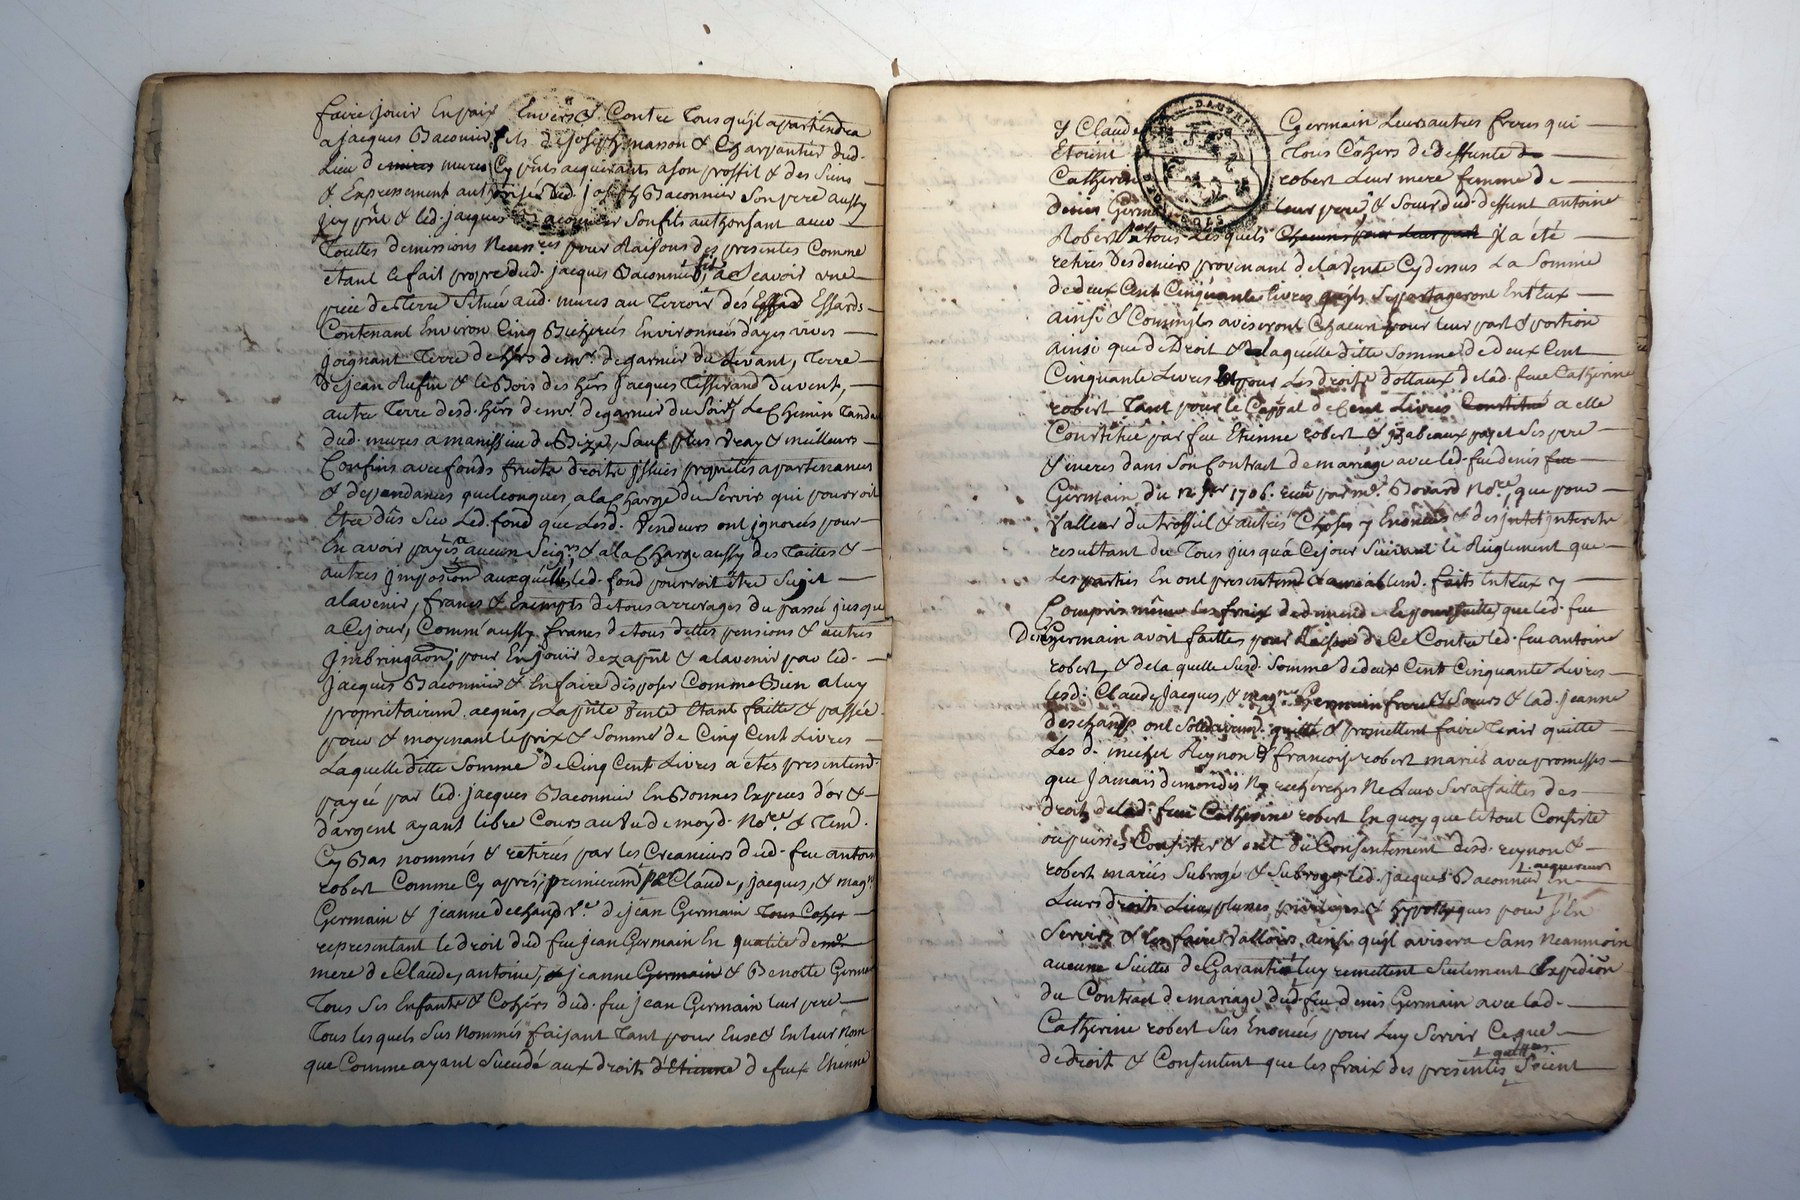 faire Jouir En paix Envers & Contre Tous qu'jl apartiendra
a Jacques Baconnier fils de Joseph masson & Charpantier dud.
Lieu de mures mures Cy pñts acquerants a son proffit & des Siens
& Expressement authorisé dud. Joseph Baconnier Son pere aussy
Jcy pñt & led. jacques Baconnier Son fils authorisant avec
Touttes demissions pour Raisons des presentes Comme
etant le fait propre dud. jacques Baconnier fils, a Scavoir une
piece de Terre Située aud. mures au Terroir des Essard Essards
Contenant Environ Cinq Environnées d'ayes vives
Joignant Terre de hers de mr. degarnier du Levant, Terre
de jean Rufin & le Bois des hers Jacques Tisserand du vent,
autre Terre desd. hers de mr. degarnier du Soir, Le Chemin Tandant
dud. mures a de Bize, Sauf plus vray & meilleurs
Confins avec fonds fruits droits jssues proprietés apartenances
& dependances quelconques, a la Charge du Servis qui pourroit
Etre dûs Sur Led. fond que Lesd. Vendeurs ont ignorés pour
En avoir payés a aucun Seigr. & a la Charge aussy des Tailles &
autres Jmposiõn auxquelles led. fond pourroit être Sujet
alavenir, francs & Exempts de tous arrerages du passé jusque
a Ce jour, Comme aussy francs de tous dettes pensions & autres
pour En jouir dez apñt & alavenir par led.
Jacques Baconnier & En faire disposer Comme Bien a luy
propriétairemt. aquis, La pñte Vente Etant faitte & passée
pour & moyenant le prix & Somme de Cinq Cent Livres
Laquelle ditte Somme de Cinq Cent Livres a étés presentemt.
payée par led. jacques Baconnier En Bonnes Especes d'or &
d'argent ayant libre Cours au Vu de moyd. Nore. & Tem.
Cy Bas nommés & retirés par les Creanciers dud. feu antoine
robert Comme Cy aprés, premierem par Claude, jacques, & magne.
Germain & jeanne dechand Ve. de jean Germain Tous Coher
representant le droit dud feu jean Germain En qualité de md.
mere de Claude, antoine, & jeanne Germain & Benoite Germain
Tous Ses Enfants & Cohers dud. feu jean Germain leur pere
Tous lesquels Sus Nommés faisant Tant pour Eux & En leur Nom
que Comme ayant Succedé aux droits d'Etienne de feux Etienne
& Claude Germain Leurs autres freres qui
Etoint Tous Cohers de deffunte de
Catherine robert Leur mere femme de
denis Germain leur pere, & Sœur dud. deffunt antoine
Robert a tous Lesquels Chacuns pour Leur part Jl a été
retirés des deniers provenant de la Vente Cy dessus La Somme
de deux Cent Cinquante livres qu'jls Se partageront Entr'Eux
ainsi & Comm'jls aviseront Chacun pour leur part & portion
ainsi que de Droit & laquelle ditte Somme de deux Cent
Cinquante Livres Est pour Les droits dottaux de lad. feue Catherine
robert Tant pour le Cappal de Cent Livres Constitué a elle
Constitué par feu Etienne robert & Ses pere
& meres dans Son Contract de mariage avec led. feu denis feu
Germain du 12 1706. reçu par me. Bovard Nore., que pour
Valleur du trossel & autres Choses y Enoncées & des justes interets
resultant du Tous jusqu'a Ce jour Suivant le Reglement que
Les parties En ont presentemt. & amiablemt. faits Entr'eux y
Compris même les fraix de demande & poursuittes que led. feu
Denis Germain avoit faittes pour Raison de Ce Contre led. feu antoine
robert, & de la quelle Susd. Somme de deux Cent Cinquante Livres
lesd. Claude, Jacques, & magne. Germain freres & Sœurs & lad. jeanne
deschamps ont Solidairemt. quitté & promettent faire Tenir quitte
Les d. michel Reynon & francoise robert mariés avec promesses
que Jamais demandes Ny recherches Ne Leur Sera faittes des
droits de lad. feue Catherine robert En quoy que le tout Consiste
ou puisse Consister & ont du Consentement desd. reynon &
robert mariés Subrogé & Subrogent led. jacques Baconnier, En
L acquereur
Leurs droits Lieu places privileges & hypotheques pour S'En
Servir & les faire Valloir ainsi qu'jl avisera Sans Neanmoin
aucune Suittes de Garantie luy remettent Seulement Expediõn
du Contract de mariage dud. feu denis Germain avec lad.
Catherine robert Sus Enoncées pour Luy Servir Ce que
de droit & Consentent que les fraix des presentes Soient